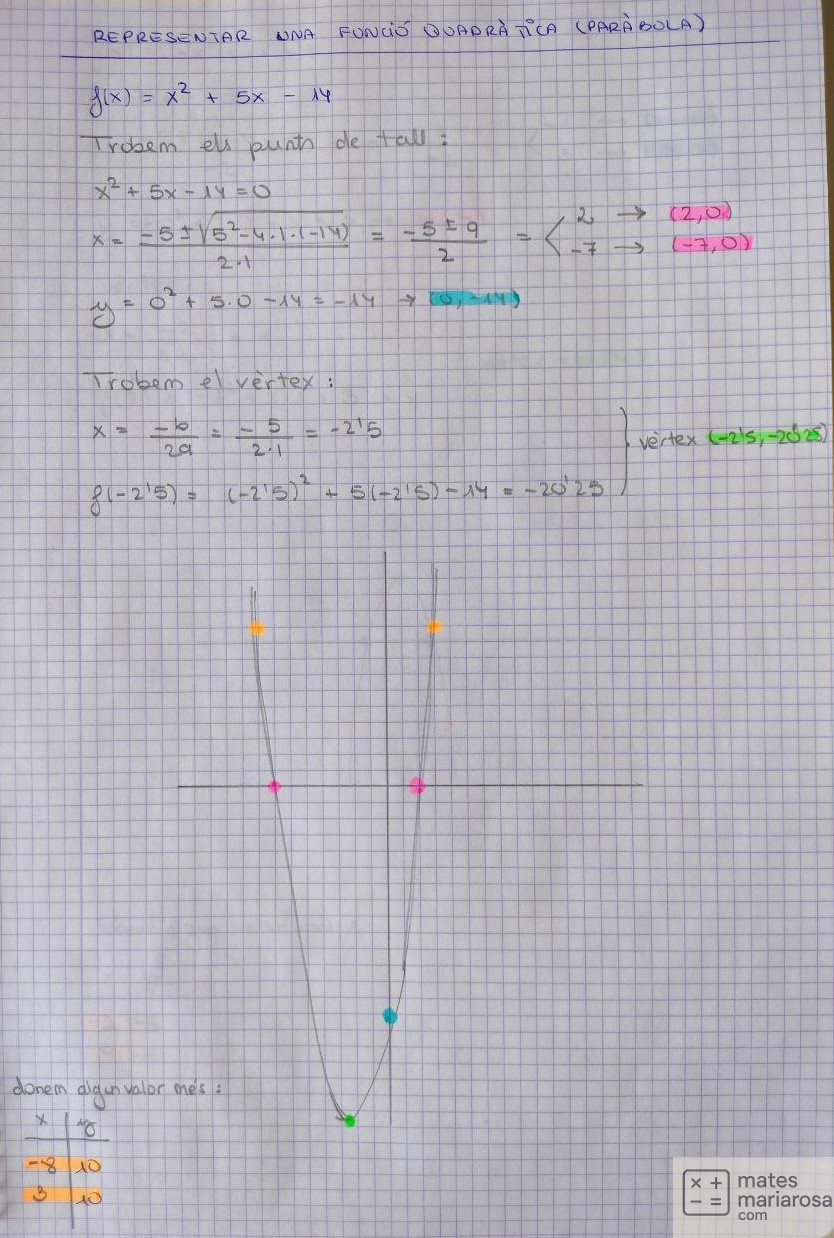 REPRESENTAR UNA FUNCIÓ QUADRÀTICA (PARÀBOLA)
f(x) = x² + 5x - 14
Trobem els punts de tall :
x² + 5x - 14 = 0
x = (-5 ± √(5² - 4·1·(-14))) / 2·1 = (-5 ± 9) / 2 = < 2 → (2,0)
-7 → (-7,0)
y = 0² + 5·0 - 14 = -14 → (0,-14)
Trobem el vèrtex :
x = -b/2a = -5/2·1 = -2'5
vèrtex (-2'5, -20'25)
f(-2'5) = (-2'5)² + 5(-2'5) - 14 = -20'25
donem algun valor més :
x | y
-8 | 10
3 | 10
x + mates
- = mariarosa
com